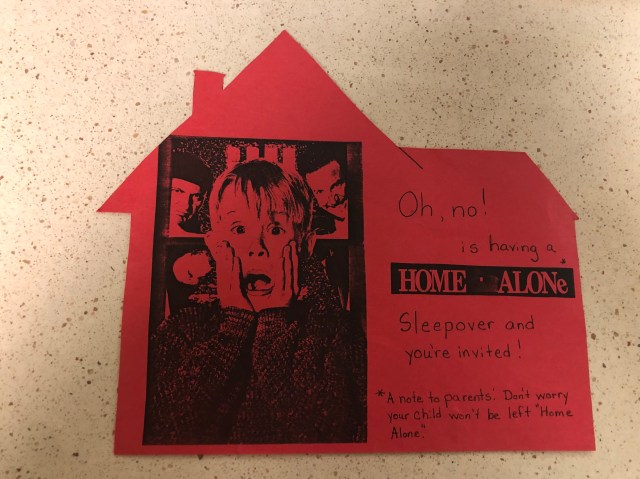 Oh, no!
is having a *
HOME · ALONe
Sleepover and
you're invited!
* A note to parents: Don't worry
your child won't be left "Home
Alone."